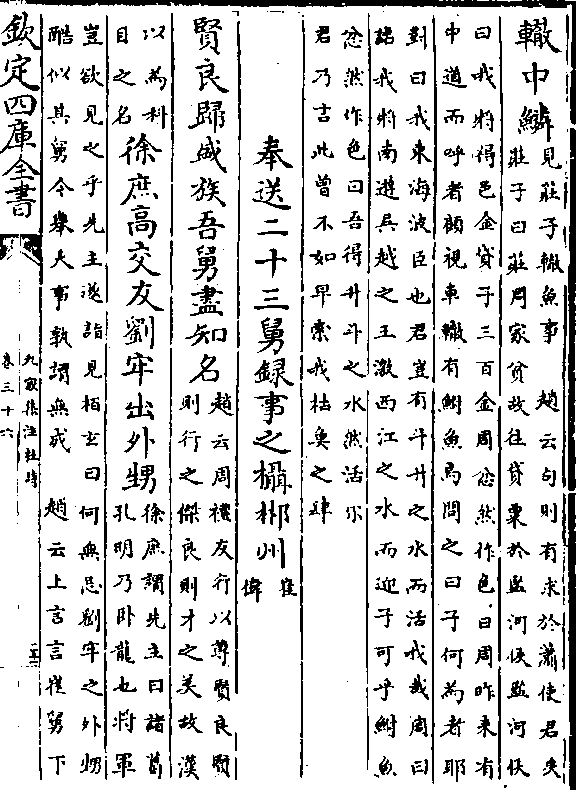 轍中鱗
見莊子轍魚事　趙云句則有求於蕭使君矣
莊子曰莊周家貧故往貸粟於監河侯監河侯
曰我將得邑金貸子三百金周忿然作色曰周昨來有
中道而呼者顧視車轍有鮒魚焉問之曰子何為者耶
對曰我東海波臣也君豈有斗升之水而活我哉周曰
諾我將南遊吳越之王激西江之水而迎子可乎鮒魚
忿然作色曰吾得升斗之水然活尔
君乃言此曾不如早索我枯魚之肆
奉送二十三舅録事之攝郴州
崔
偉
賢良歸盛族吾舅盡知名
趙云周禮友行以尊賢良賢
則行之傑良則才之美故漢
以為科
目之名
徐庶高交友劉牢出外甥
徐庶謂先主曰諸葛
孔明乃卧龍也將軍
豈欲見之乎先主遂詣見栢玄曰何無忌劉牢之外甥
酷似其舅令舉大事孰謂無成　趙云上言言崔舅下
欽定四庫全書
九家集注杜詩
卷三十六